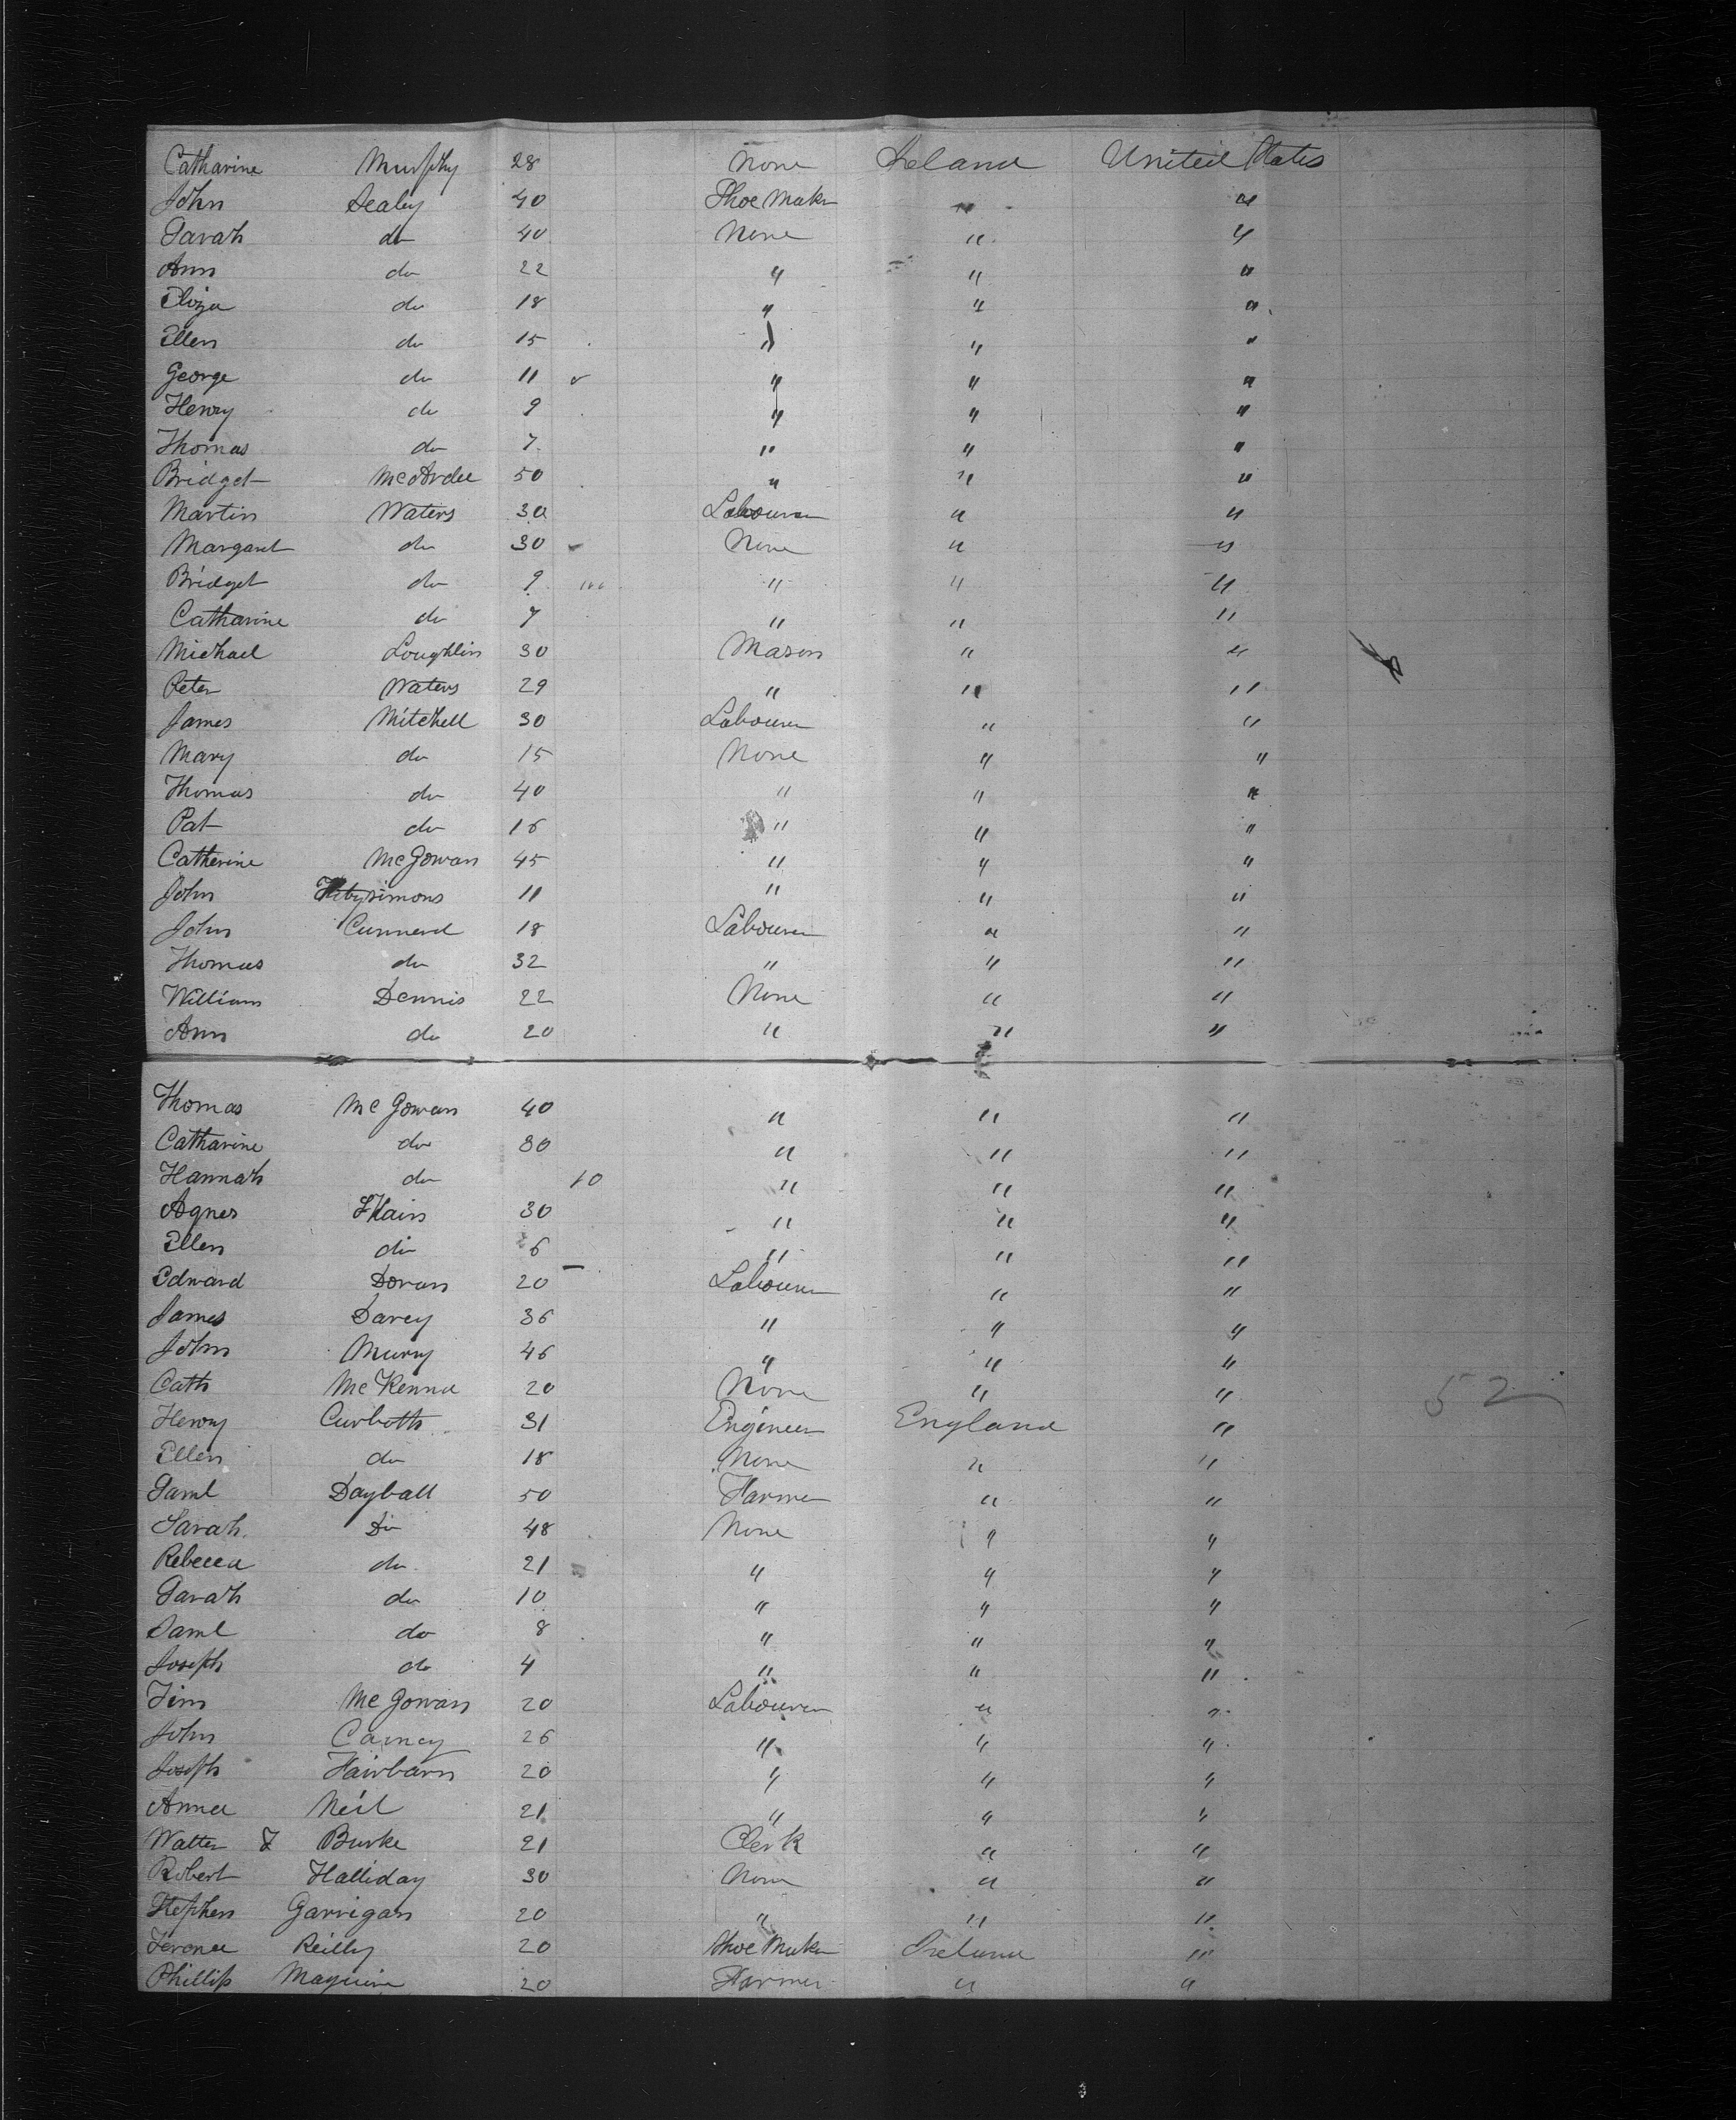 Catharine Murphy 28 None Ireland United States
John Sealey 40 Shoe Maker " "
Sarah do 40 None " "
Ann do 22 " " "
Eliza do 18 " " "
Ellen do 15 " " "
George do 11 " " "
Henry do 9 " " "
Thomas do 7 " " "
Bridget McArdee 50 " " "
Martin Waters 30 Labourer " "
Margaret do 30 None " "
Bridget do 9 " " "
Catharine do 7 " " "
Michael Loughlin 30 Mason " "
Peter Waters 29 " " "
James Mitchell 30 Labourer " "
Mary do 15 None " "
Thomas do 40 " " "
Pat do 16 " " "
Catherine McGowan 45 " " "
John 11 " " "
John Cunnerd 18 Labourer " "
Thomas do 32 " " "
William Dennis 22 None " "
Ann do 20 " " "
Thomas Mc Gowan 40 " " "
Catharine do 30 " " "
Hannah do 10 " " "
Agnes 30 " " "
Ellen do 6 " " "
Edward Doran 20 Labourer " "
James Darcy 36 " " "
John Murry 46 " " "
Cath McKenna 20 None " " 52
Henry Curboth 31 Engineer England "
Ellen do 18 None " "
Saml Dayball 50 Farmer " "
Sarah Do 48 None " "
Rebecca do 21 " " "
Sarah do 10 " " "
Saml do 8 " " "
Joseph do 4 " " "
Tim McGowan 20 Labourer " "
John Carney 26 " " "
Joseph Fairbarn 20 " " "
Anna Neil 21 " " "
Walter F Burke 21 Clerk " "
Robert Halliday 30 None " "
Stephen Garrigan 20 " " "
Terence Reilly 20 Shoe Maker Ireland "
Phillip Maguire 20 Farmer " "